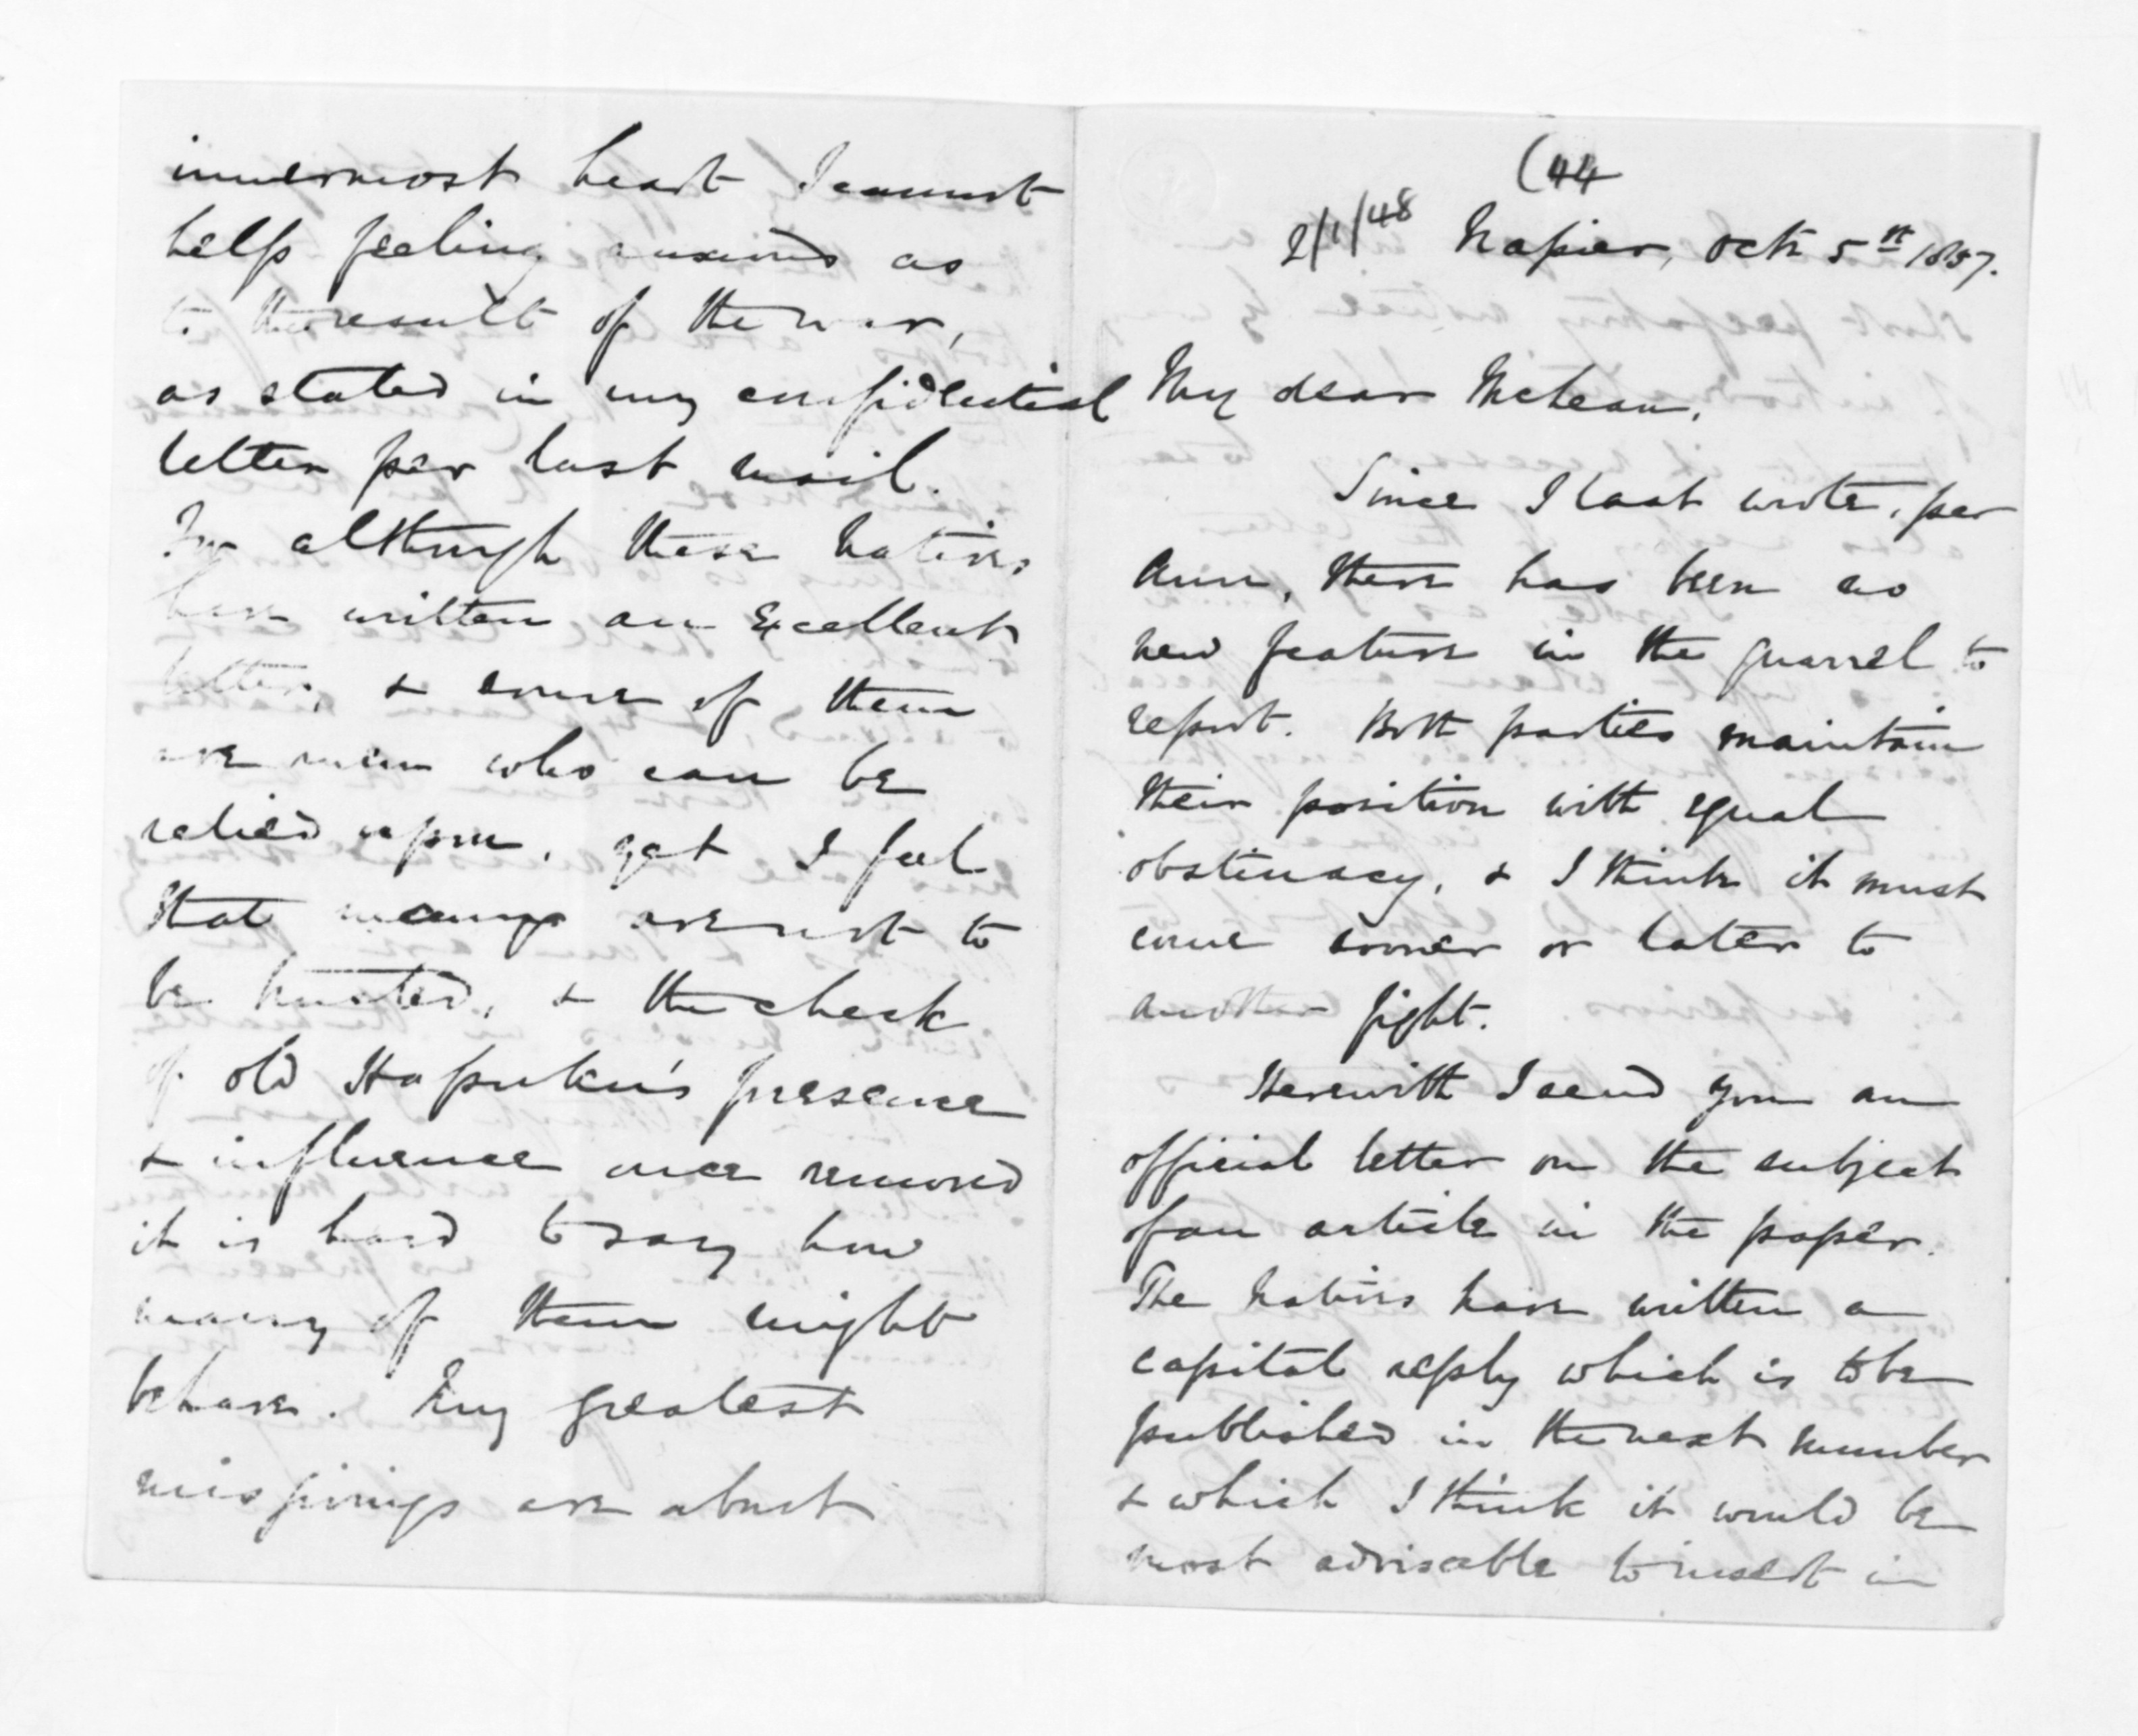 innermost heart I cannot
help feeling anxious as
to the result of the war,
as stated in my confidential
letter per last mail.
For although these natives
have written an excellent
letter, & some of them
are men who can be
relied upon, yet I feel
that many are not to
be trusted, & the check
of old Hapuku's presence
& influence once removed
it is hard to say how
many of them might
behave. My greatest
misgivings are about
(44
2/1/48 Napier, Octr 5th 1857.
My dear McLean,
Since I last wrote, per
Ann, there has been no
new feature in the quarrel to
report. Both parties maintain
their position with equal
obstinacy, & I think it must
come sooner or later to
another fight.
Herewith I send you an
official letter on the subject
of an article in the paper.
The natives have written a
capital reply which is to be
published in the next number
& which I think it would be
most advisable to insert in